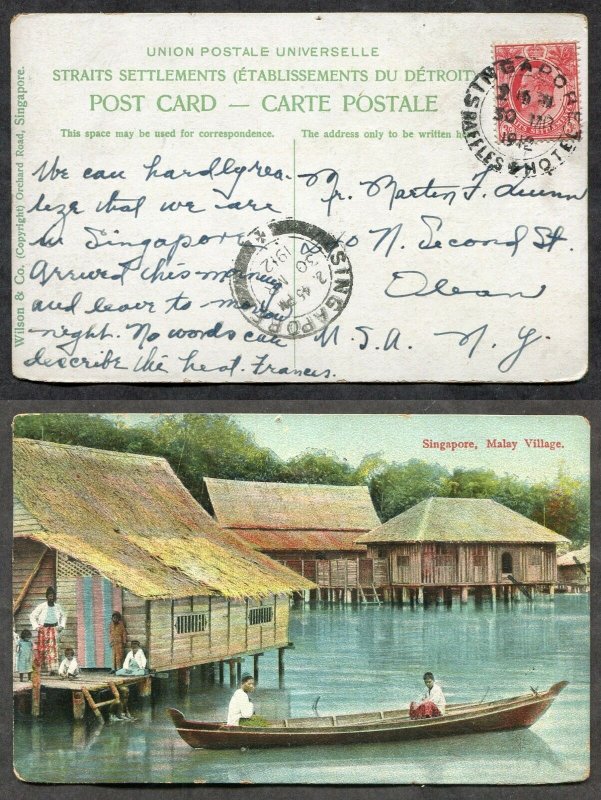 UNION POSTALE UNIVERSELLE
STRAITS SETTLEMENTS (ÉTABLISSEMENTS DU DÉTROIT)
POST CARD — CARTE POSTALE
This space may be used for correspondence. The address only to be written he
Wilson & Co. (Copyright) Orchard Road, Singapore.
We can hardly rea-
lize that we are
in Singapore.
Arrived this morning
and leave to morrow
night. No words can
describe the heat. Francis.
Mr. Martin F. Quinn
N. Second St.
Olean
U.S.A. N.Y.
SINGAPORE
RAFFLES HOTEL
30
1912
SINGAPORE
2 45 PM
30
1912
Singapore, Malay Village.